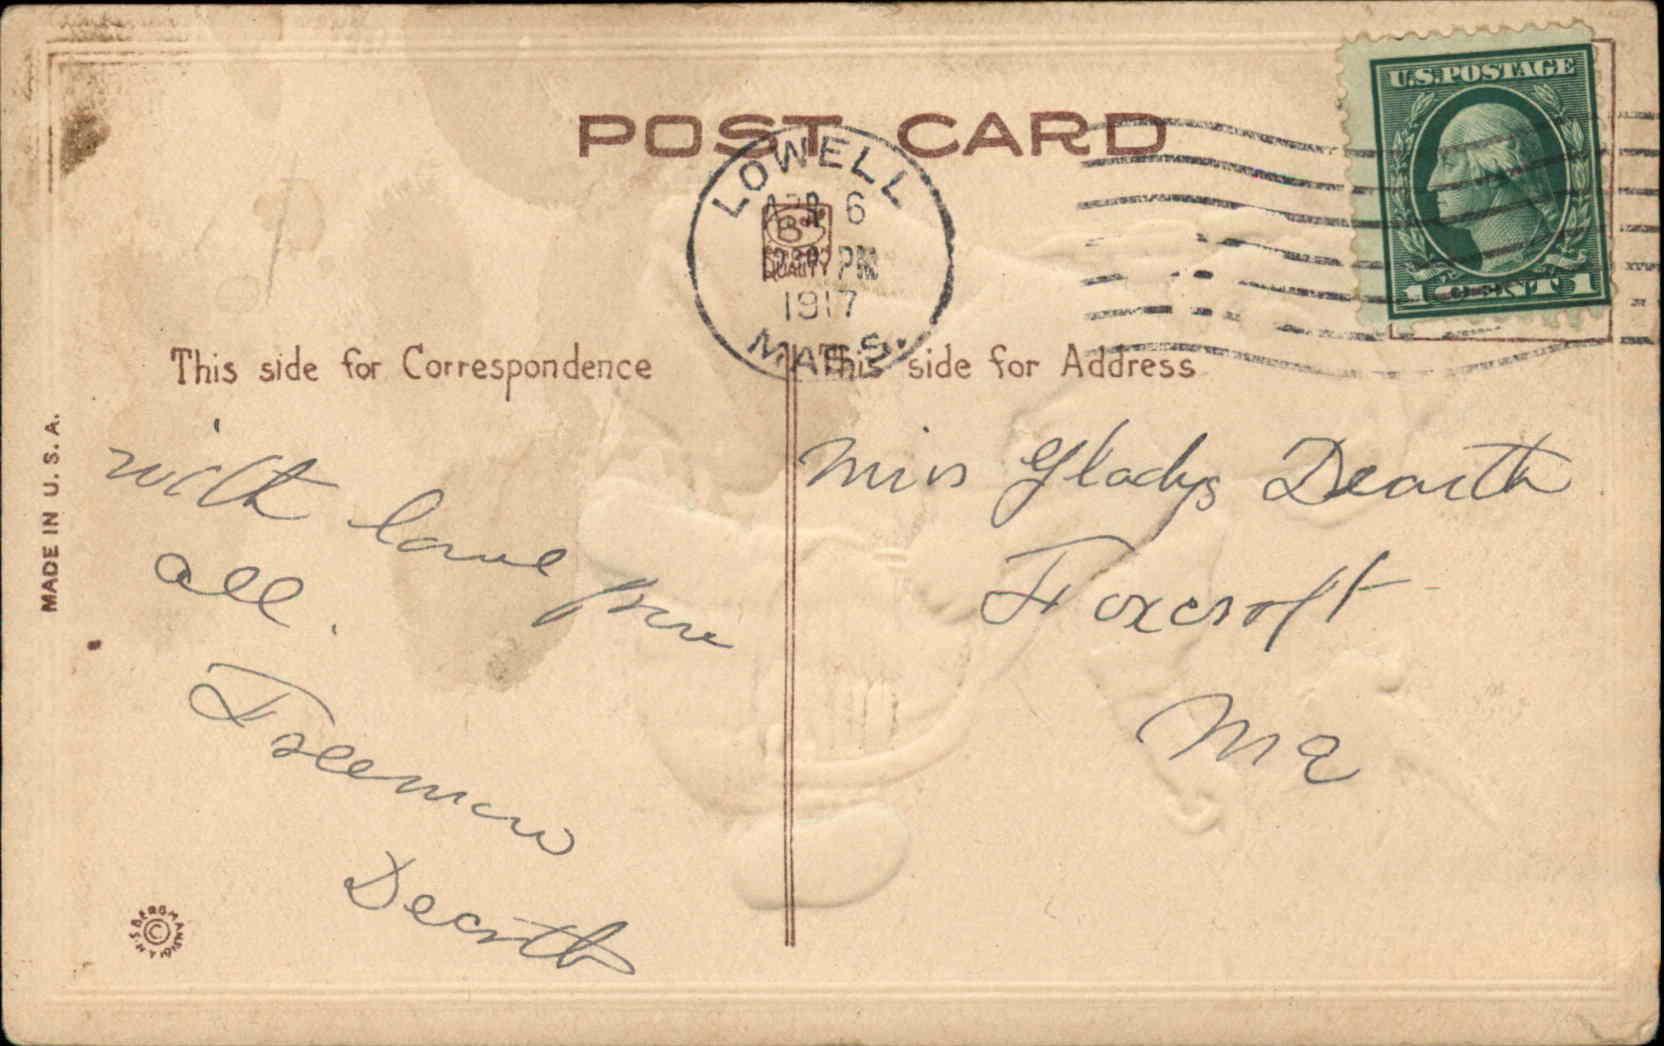 POST CARD
U.S.POSTAGE
1 1
LOWELL
APR 6
PM
1917
MASS.
B
QUALITY
This side for Correspondence
This side for Address
with love from
all.
Freeman
Dearth
Miss Gladys Dearth
Foxcroft
Me
MADE IN U.S.A.
© BERGMAN N.Y.